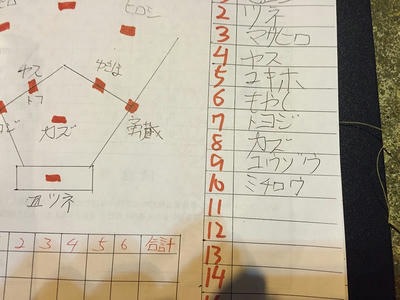 ヒロシ
ヤス
カズ
勇蔵
ツネ
2 3 4 5 6 合計
2 ツネ
3 マサヒロ
4 ヤス
5 ユキホ
6 もやし
7 トヨジ
8 カズ
9 ユウゾウ
10 ミチロウ
11
12
13
14